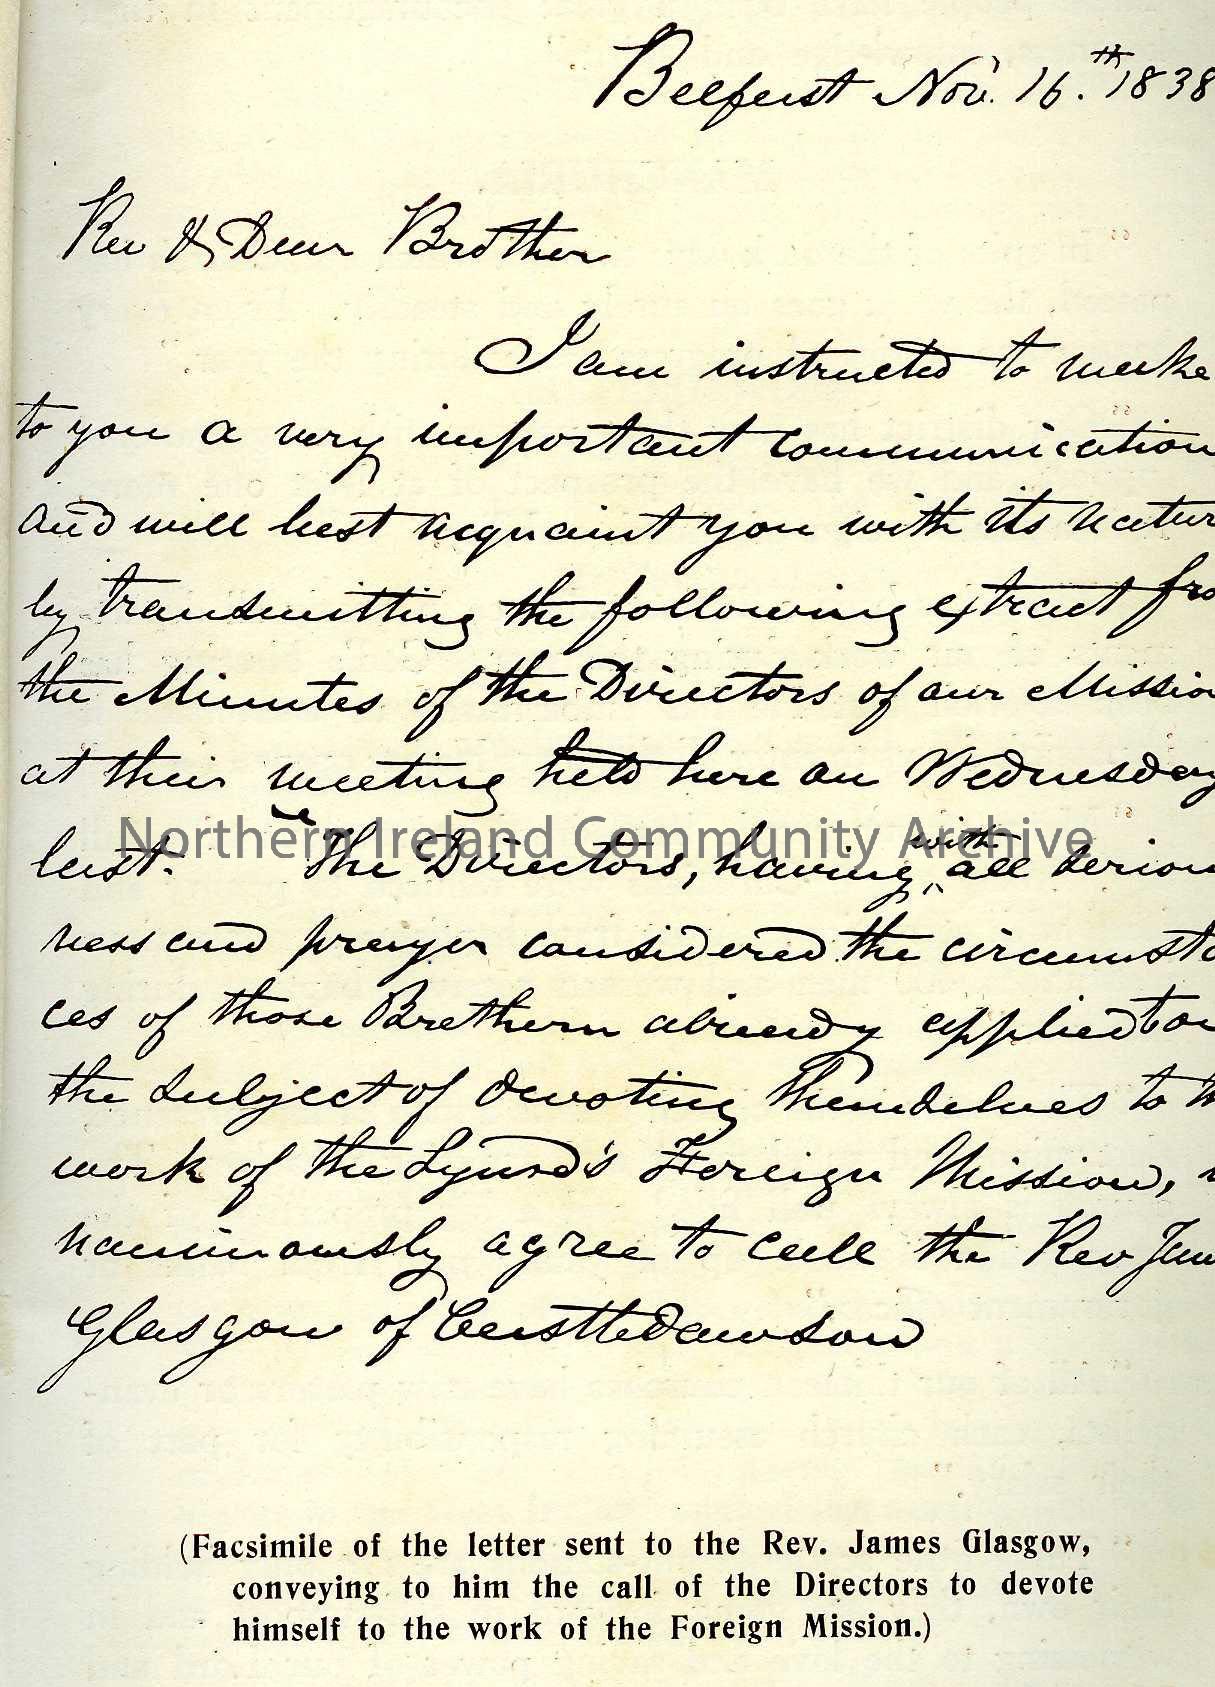 Belfast Nov. 16.th 1838
Rev & Dear Brother
I am instructed to make
to you a very important communication
and will best acquaint you with its natur
by transmitting the following extract fro
the Minutes of the Directors of our Mission
at their meeting held here on Wednesday
last. "The Directors, having with all serious
ness and prayer considered the circumsta
ces of those Brethern already applied to on
the subject of devoting themselves to th
work of the Synod's Foreign Mission, u
nanimously agree to call the Rev Jam
Glasgow of Castledawson
Northern Ireland Community Archive
(Facsimile of the letter sent to the Rev. James Glasgow,
conveying to him the call of the Directors to devote
himself to the work of the Foreign Mission.)